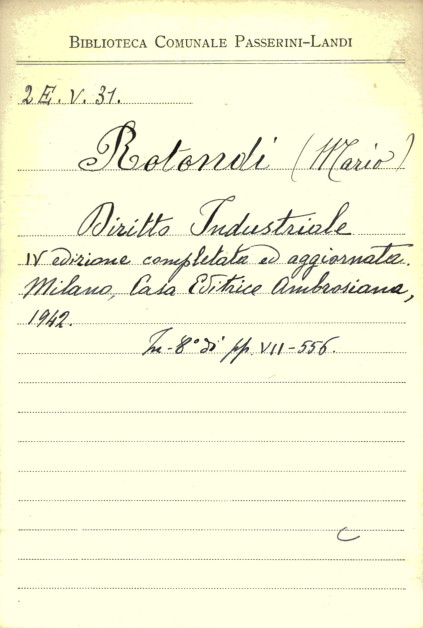 BIBLIOTECA COMUNALE PASSERINI-LANDI
2 E. V. 31.
Rotondi (Mario)
Diritto Industriale
IV edizione completata ed aggiornata.
Milano, Casa Editrice Ambrosiana,
1942.
In-8° di pp. VII-556.
C